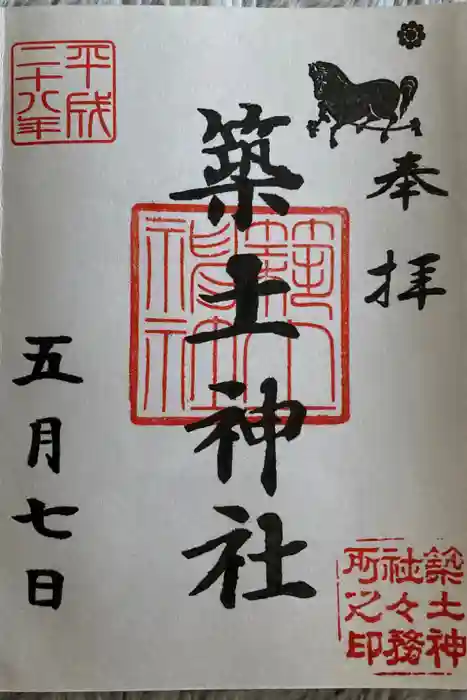 奉拝
築土神社
築土神社
平成二十八年
五月七日
築土神
社々務
所之印